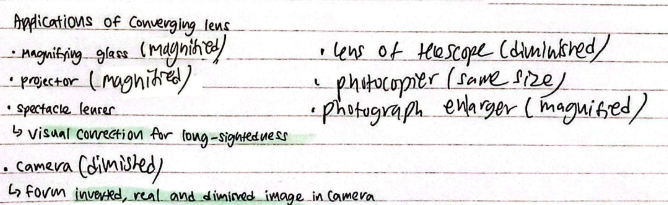 Applications of Converging lens
• Magnifying glass (magnified)
• projector (magnified)
• spectacle lenses
↳ visual correction for long-sightedness
• camera (dimished)
↳ form inverted, real and dimined image in camera
• lens of telescope (diminished)
• photocopier (same size)
• photograph enlarger (magnified)